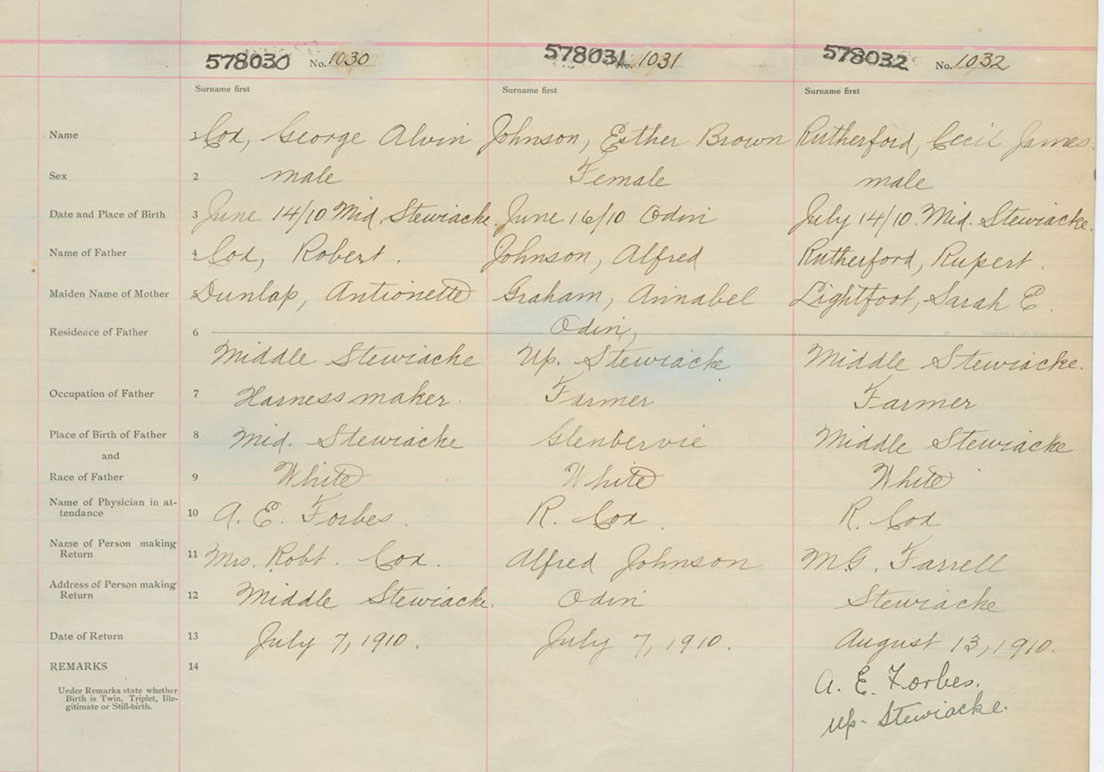 578030 No. 1030 578031 No. 1031 578032 No. 1032
Surname first Surname first Surname first
Name 1 Cox, George Alvin Johnson, Esther Brown Rutherford, Cecil James.
Sex 2 male Female male
Date and Place of Birth 3 June 14/10 Mid. Stewiacke. June 16/10 Odin July 14/10. Mid. Stewiacke.
Name of Father 4 Cox, Robert. Johnson, Alfred Rutherford, Rupert.
Maiden Name of Mother 5 Dunlap, Antionette Graham, Annabel Lightfoot, Sarah E.
Residence of Father 6 Odin,
Middle Stewiacke Up. Stewiack Middle Stewiacke.
Occupation of Father 7 Harness maker. Farmer Farmer
Place of Birth of Father 8 Mid. Stewiacke Glenbervie Middle Stewiacke
and
Race of Father 9 White White White
Name of Physician in at-
tendance 10 A. E. Forbes. R. Cox. R. Cox
Name of Person making
Return 11 Mrs. Robt. Cox. Alfred Johnson M.G. Farrell
Address of Person making
Return 12 Middle Stewiacke. Odin Stewiacke
Date of Return 13 July 7, 1910. July 7, 1910. August 13, 1910.
REMARKS 14 A. E. Forbes.
Under Remarks state whether
Birth is Twin, Triplet, Ille-
gitimate or Still-birth.
Up- Stewiacke.